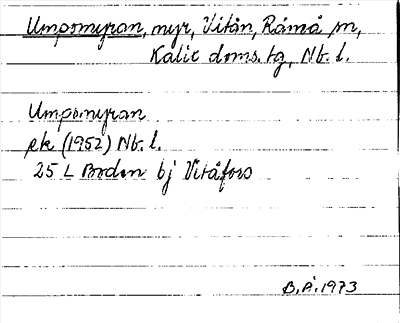 Umpomyran, myr, Vitån, Råneå sn,
Kalix doms. tg, Nb. l.
Umpomyran
ek (1952) Nb. l.
25 L Boden bj Vitåfors
B.Å. 1973